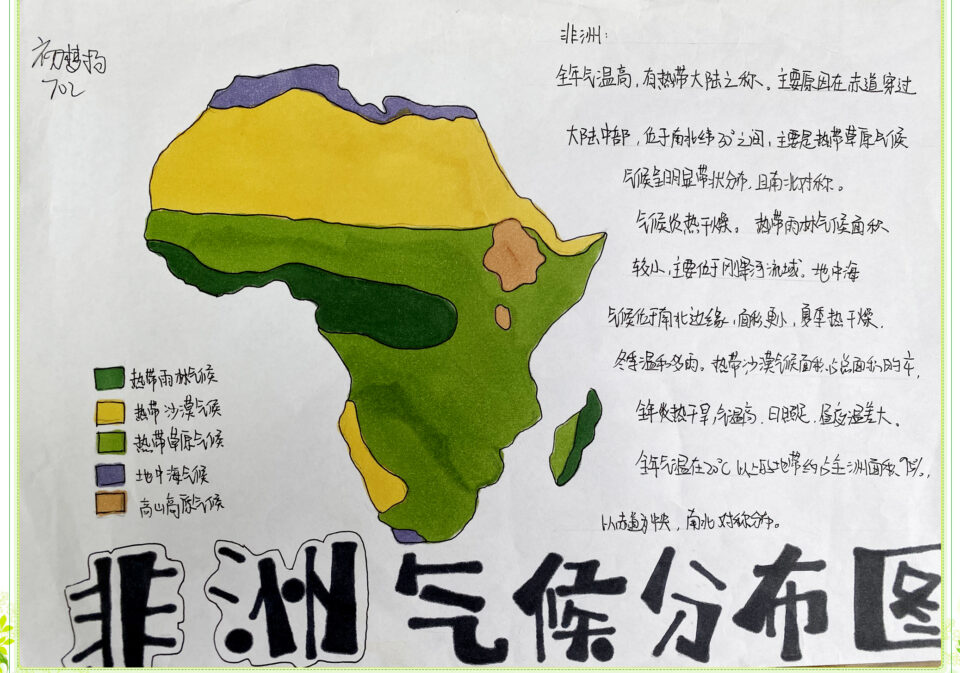 初梦扬
702
非洲:
全年气温高,有热带大陆之称。主要原因在赤道穿过
大陆中部,位于南北纬30°之间,主要是热带草原气候
气候呈明显带状分布,且南北对称。
气候炎热干燥。热带雨林气候面积
较小,主要位于刚果河流域。地中海
气候位于南北边缘,面积更小,夏季热干燥,
冬季温和多雨。热带沙漠气候面积占总面积的
全年炎热干旱,气温高,日照足,昼夜温差大。
全年气温在20℃以上的地带约占全洲面积95%,
以赤道为中央,南北对称分布。
热带雨林气候
热带沙漠气候
热带草原气候
地中海气候
高山高原气候
非洲气候分布图